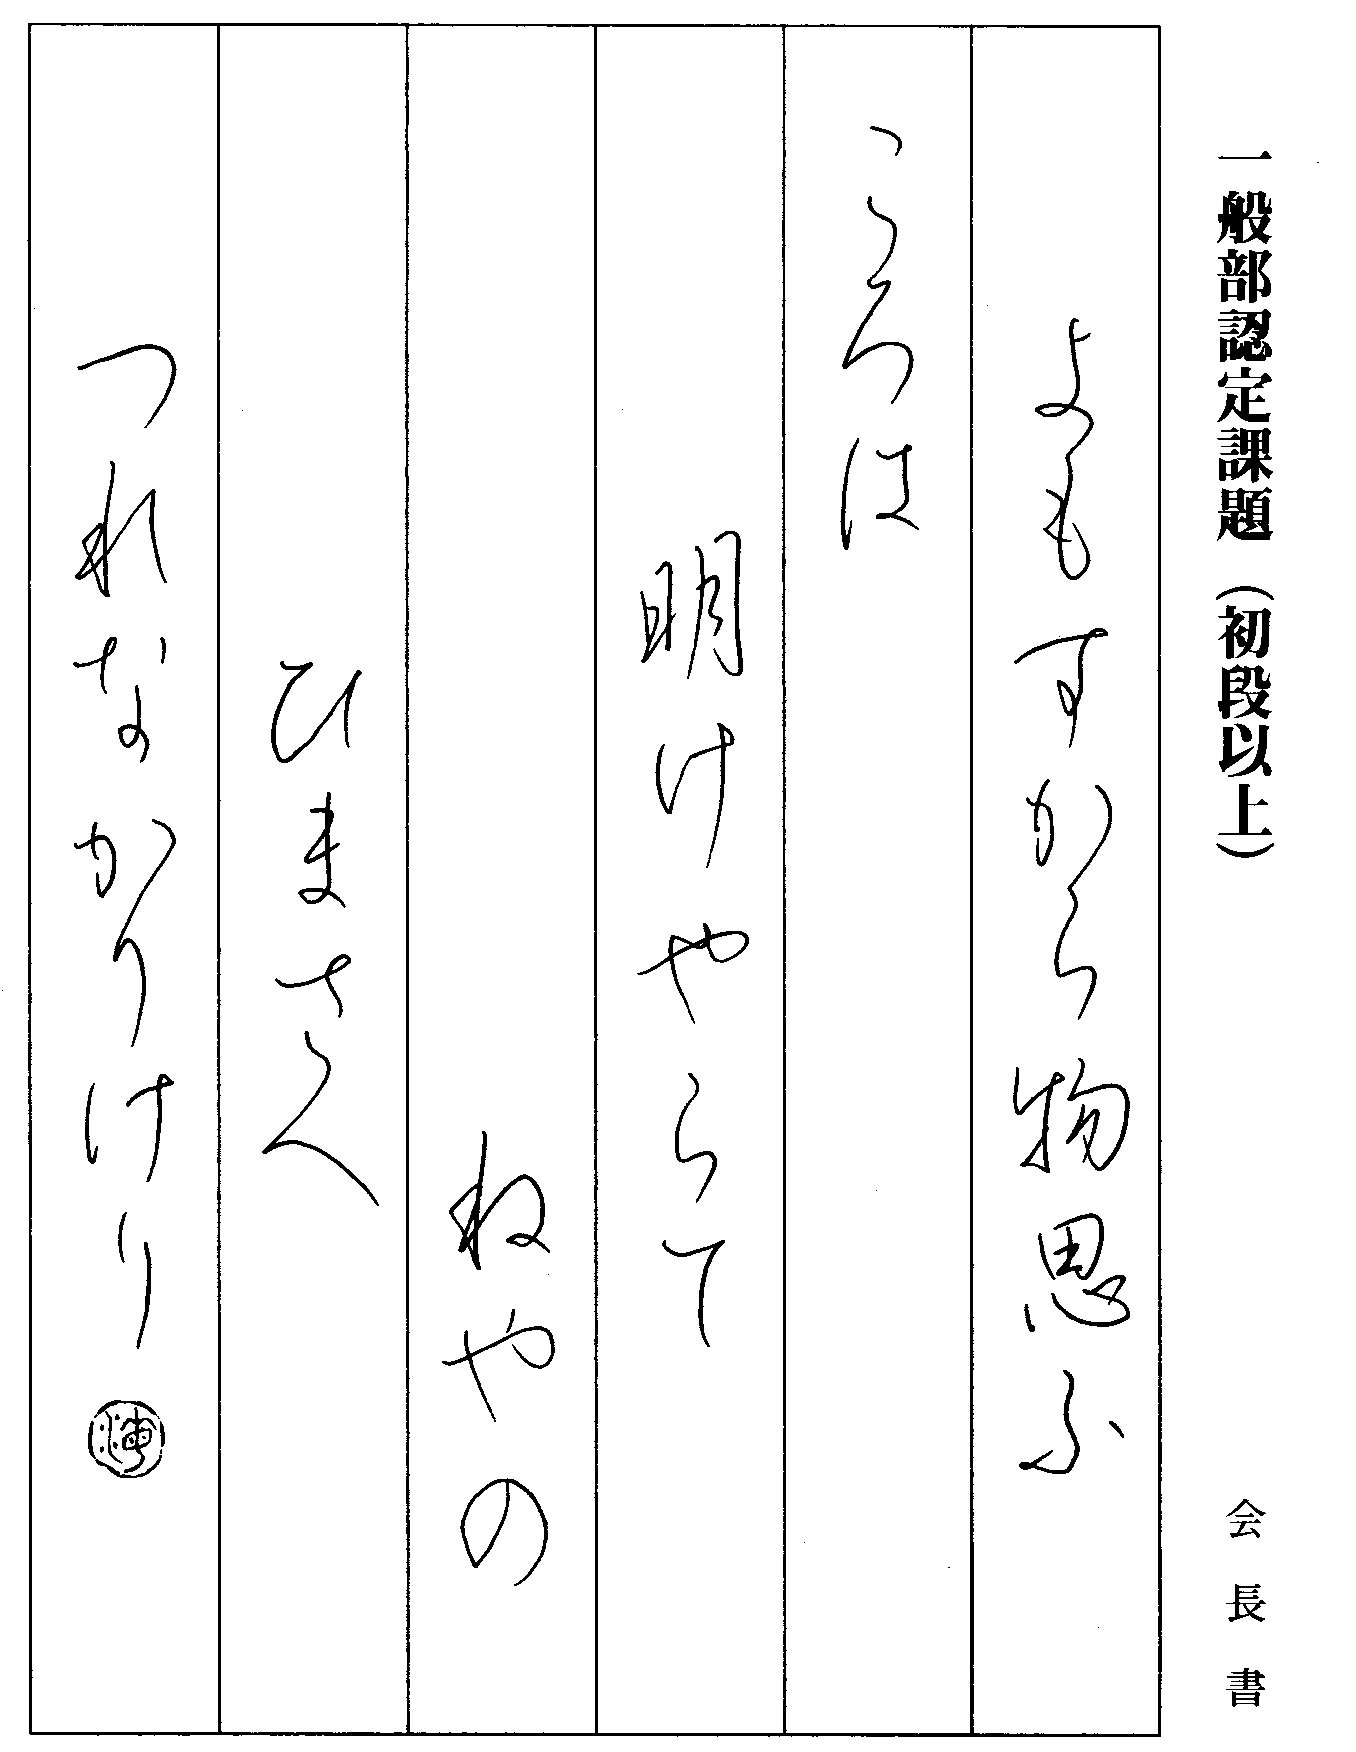 一般部認定課題（初段以上）
会長書
よもすから物思ふ
ころは
明けやらて
ねやの
ひまさへ
つれなかりけり